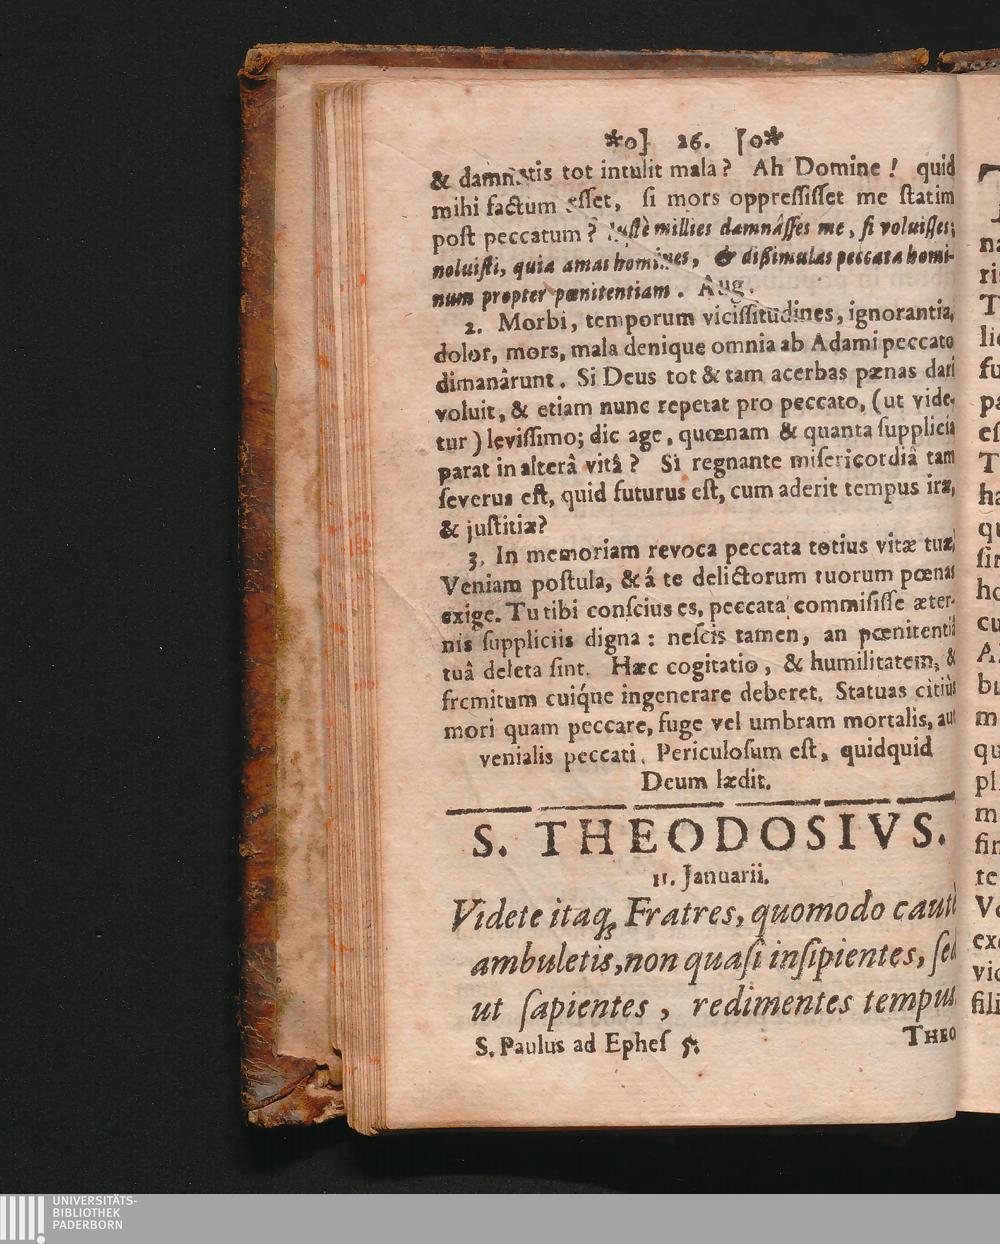 *o] 26. [o*
& damnatis tot intulit mala? Ah Domine! quid
mihi factum esset, si mors oppressisset me statim
post peccatum? Justè millies damnâsses me, si voluisses;
noluisti, quia amas homines, & dißimulas peccata homi-
num propter pœnitentiam. Aug.
2. Morbi, temporum vicissitudines, ignorantia,
dolor, mors, mala denique omnia ab Adami peccato
dimanârunt. Si Deus tot & tam acerbas pænas dari
voluit, & etiam nunc repetat pro peccato, (ut vide-
tur) levissimo; dic age, quœnam & quanta supplicia
parat in alterâ vitâ? Si regnante misericordiâ tam
severus est, quid futurus est, cum aderit tempus iræ,
& justitiæ?
3. In memoriam revoca peccata totius vitæ tuæ,
Veniam postula, & á te delictorum tuorum pœnas
exige. Tu tibi conscius es, peccata commisisse æter-
nis suppliciis digna: nescis tamen, an pœnitentiâ
tuâ deleta sint. Hæc cogitatio, & humilitatem, &
fremitum cuiq́ue ingenerare deberet. Statuas citiùs
mori quam peccare, fuge vel umbram mortalis, aut
venialis peccati. Periculosum est, quidquid
Deum lædit.
S. THEODOSIVS.
11. Januarii.
Videte itaq; Fratres, quomodo cautè
ambuletis, non quasi insipientes, sed
ut sapientes, redimentes tempus
S. Paulus ad Ephes 5.
THEO
UNIVERSITÄTS-
BIBLIOTHEK
PADERBORN